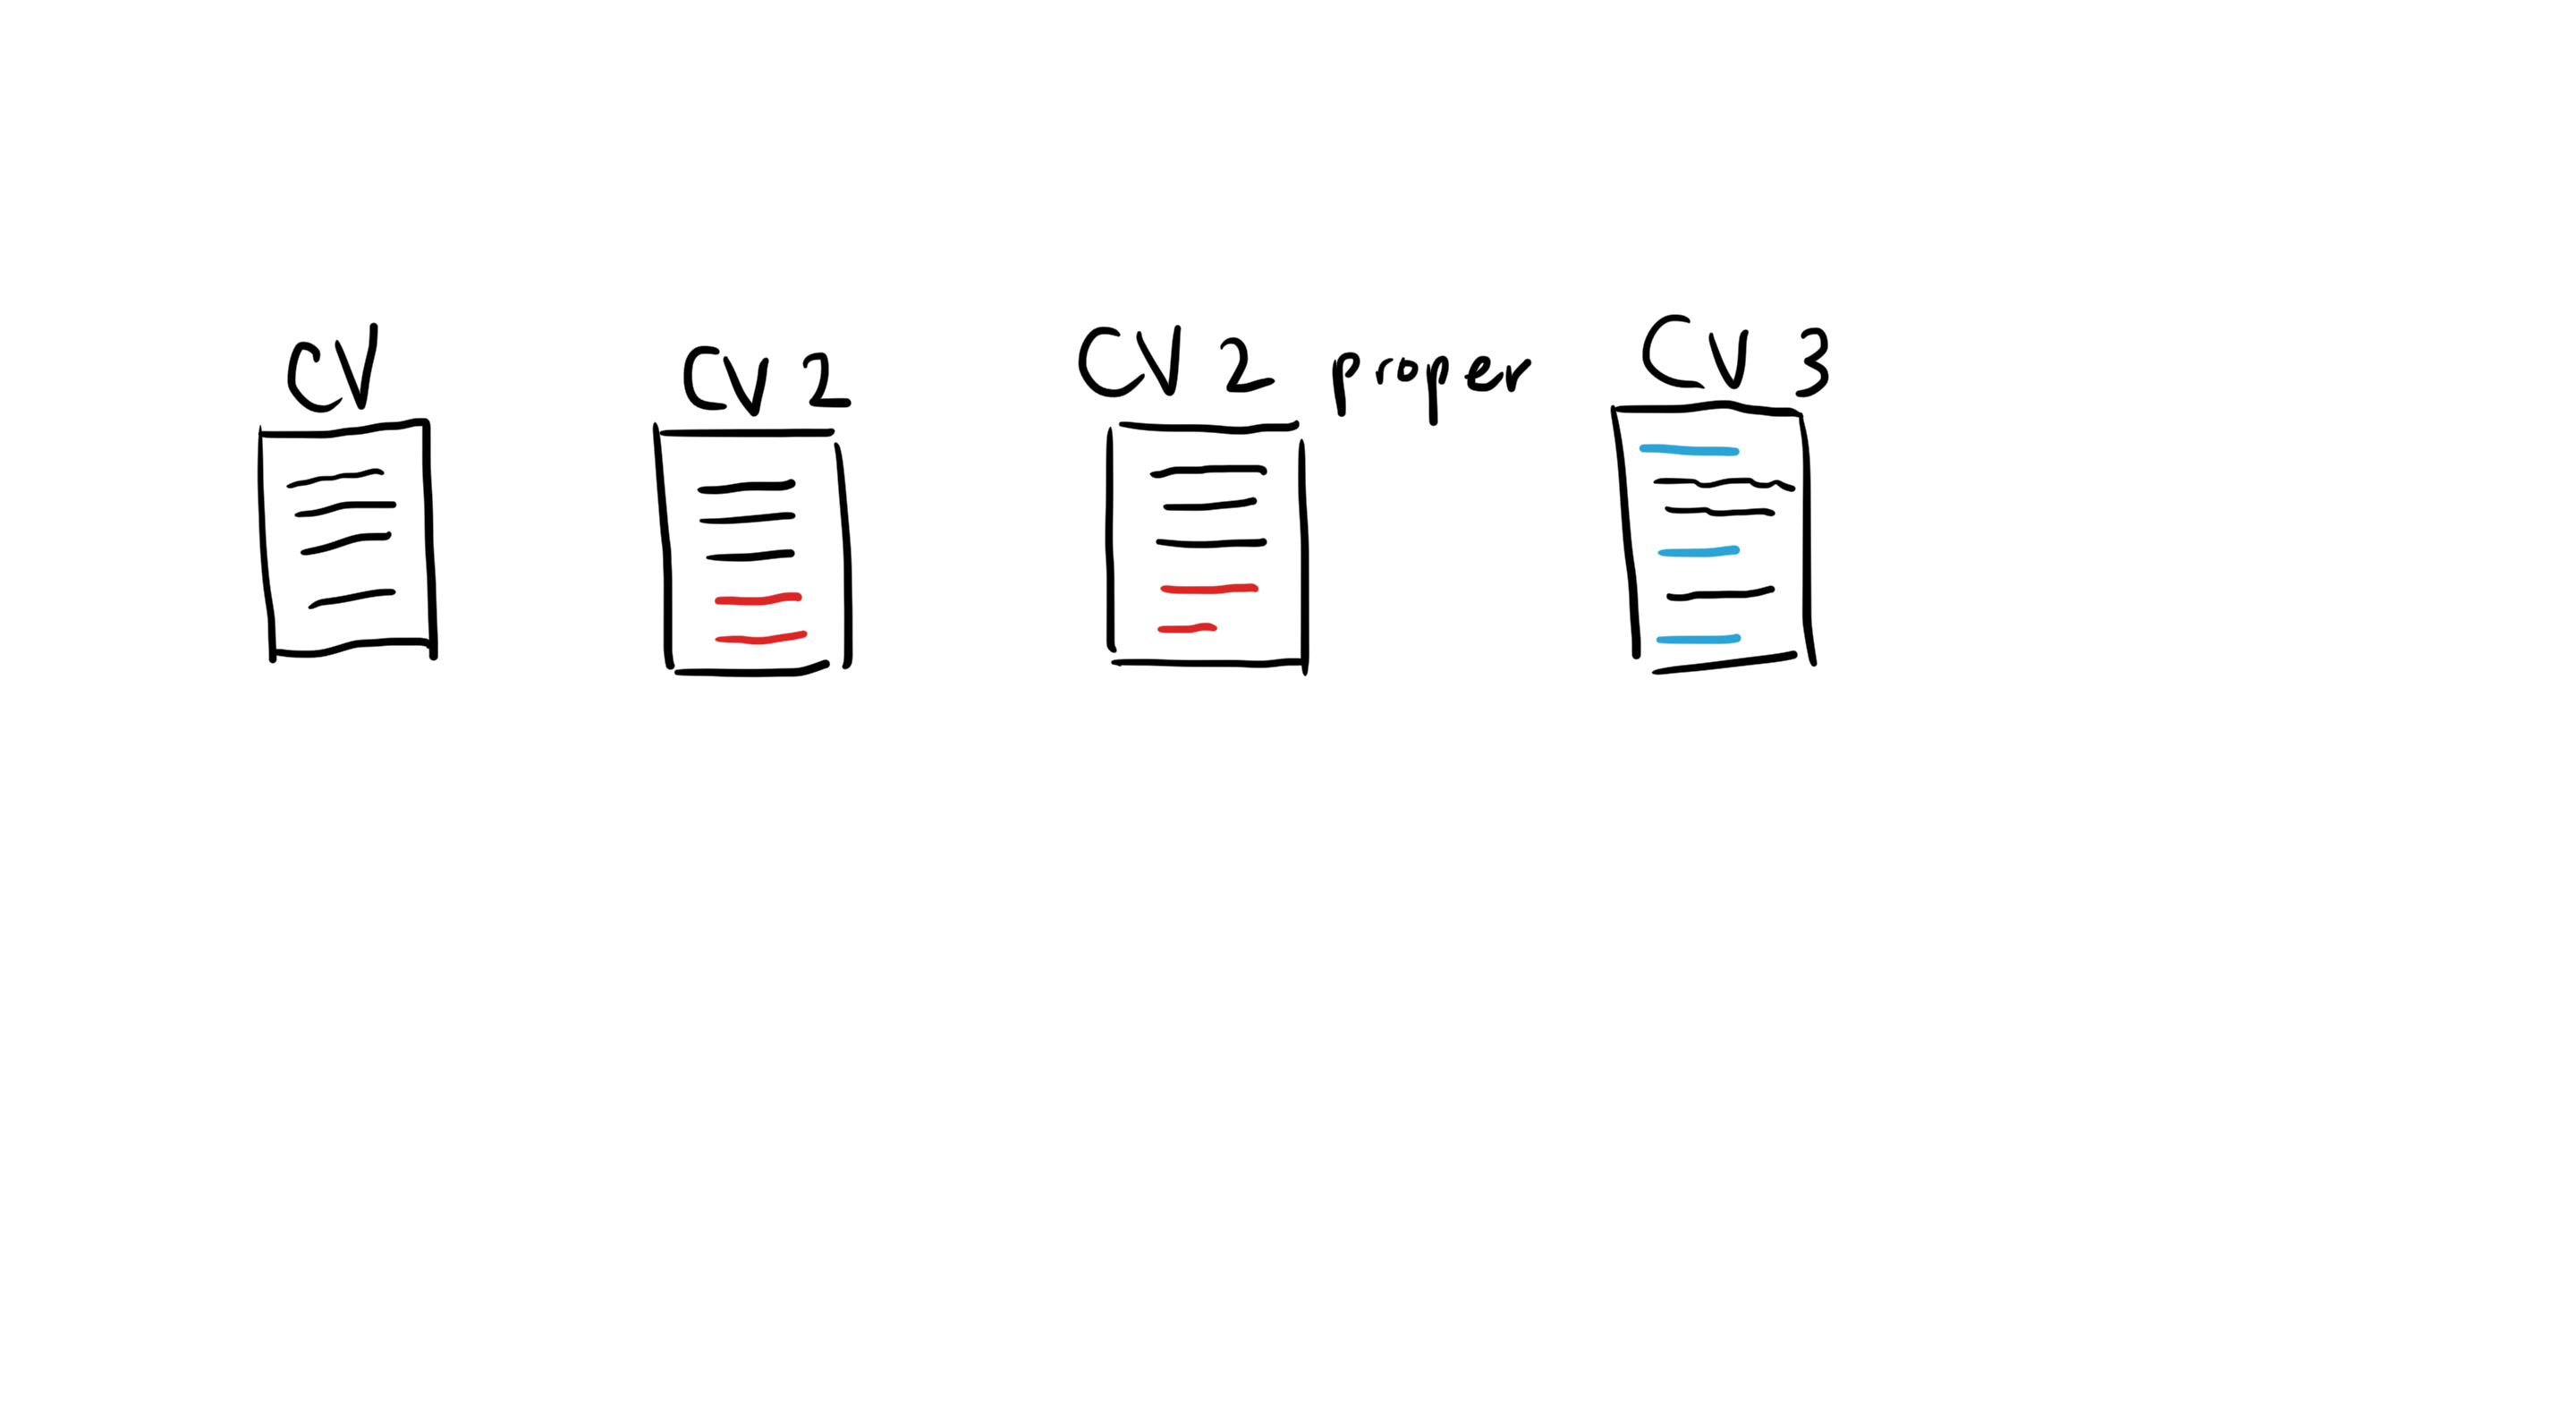 CV
CV 2
CV 2 proper
CV 3